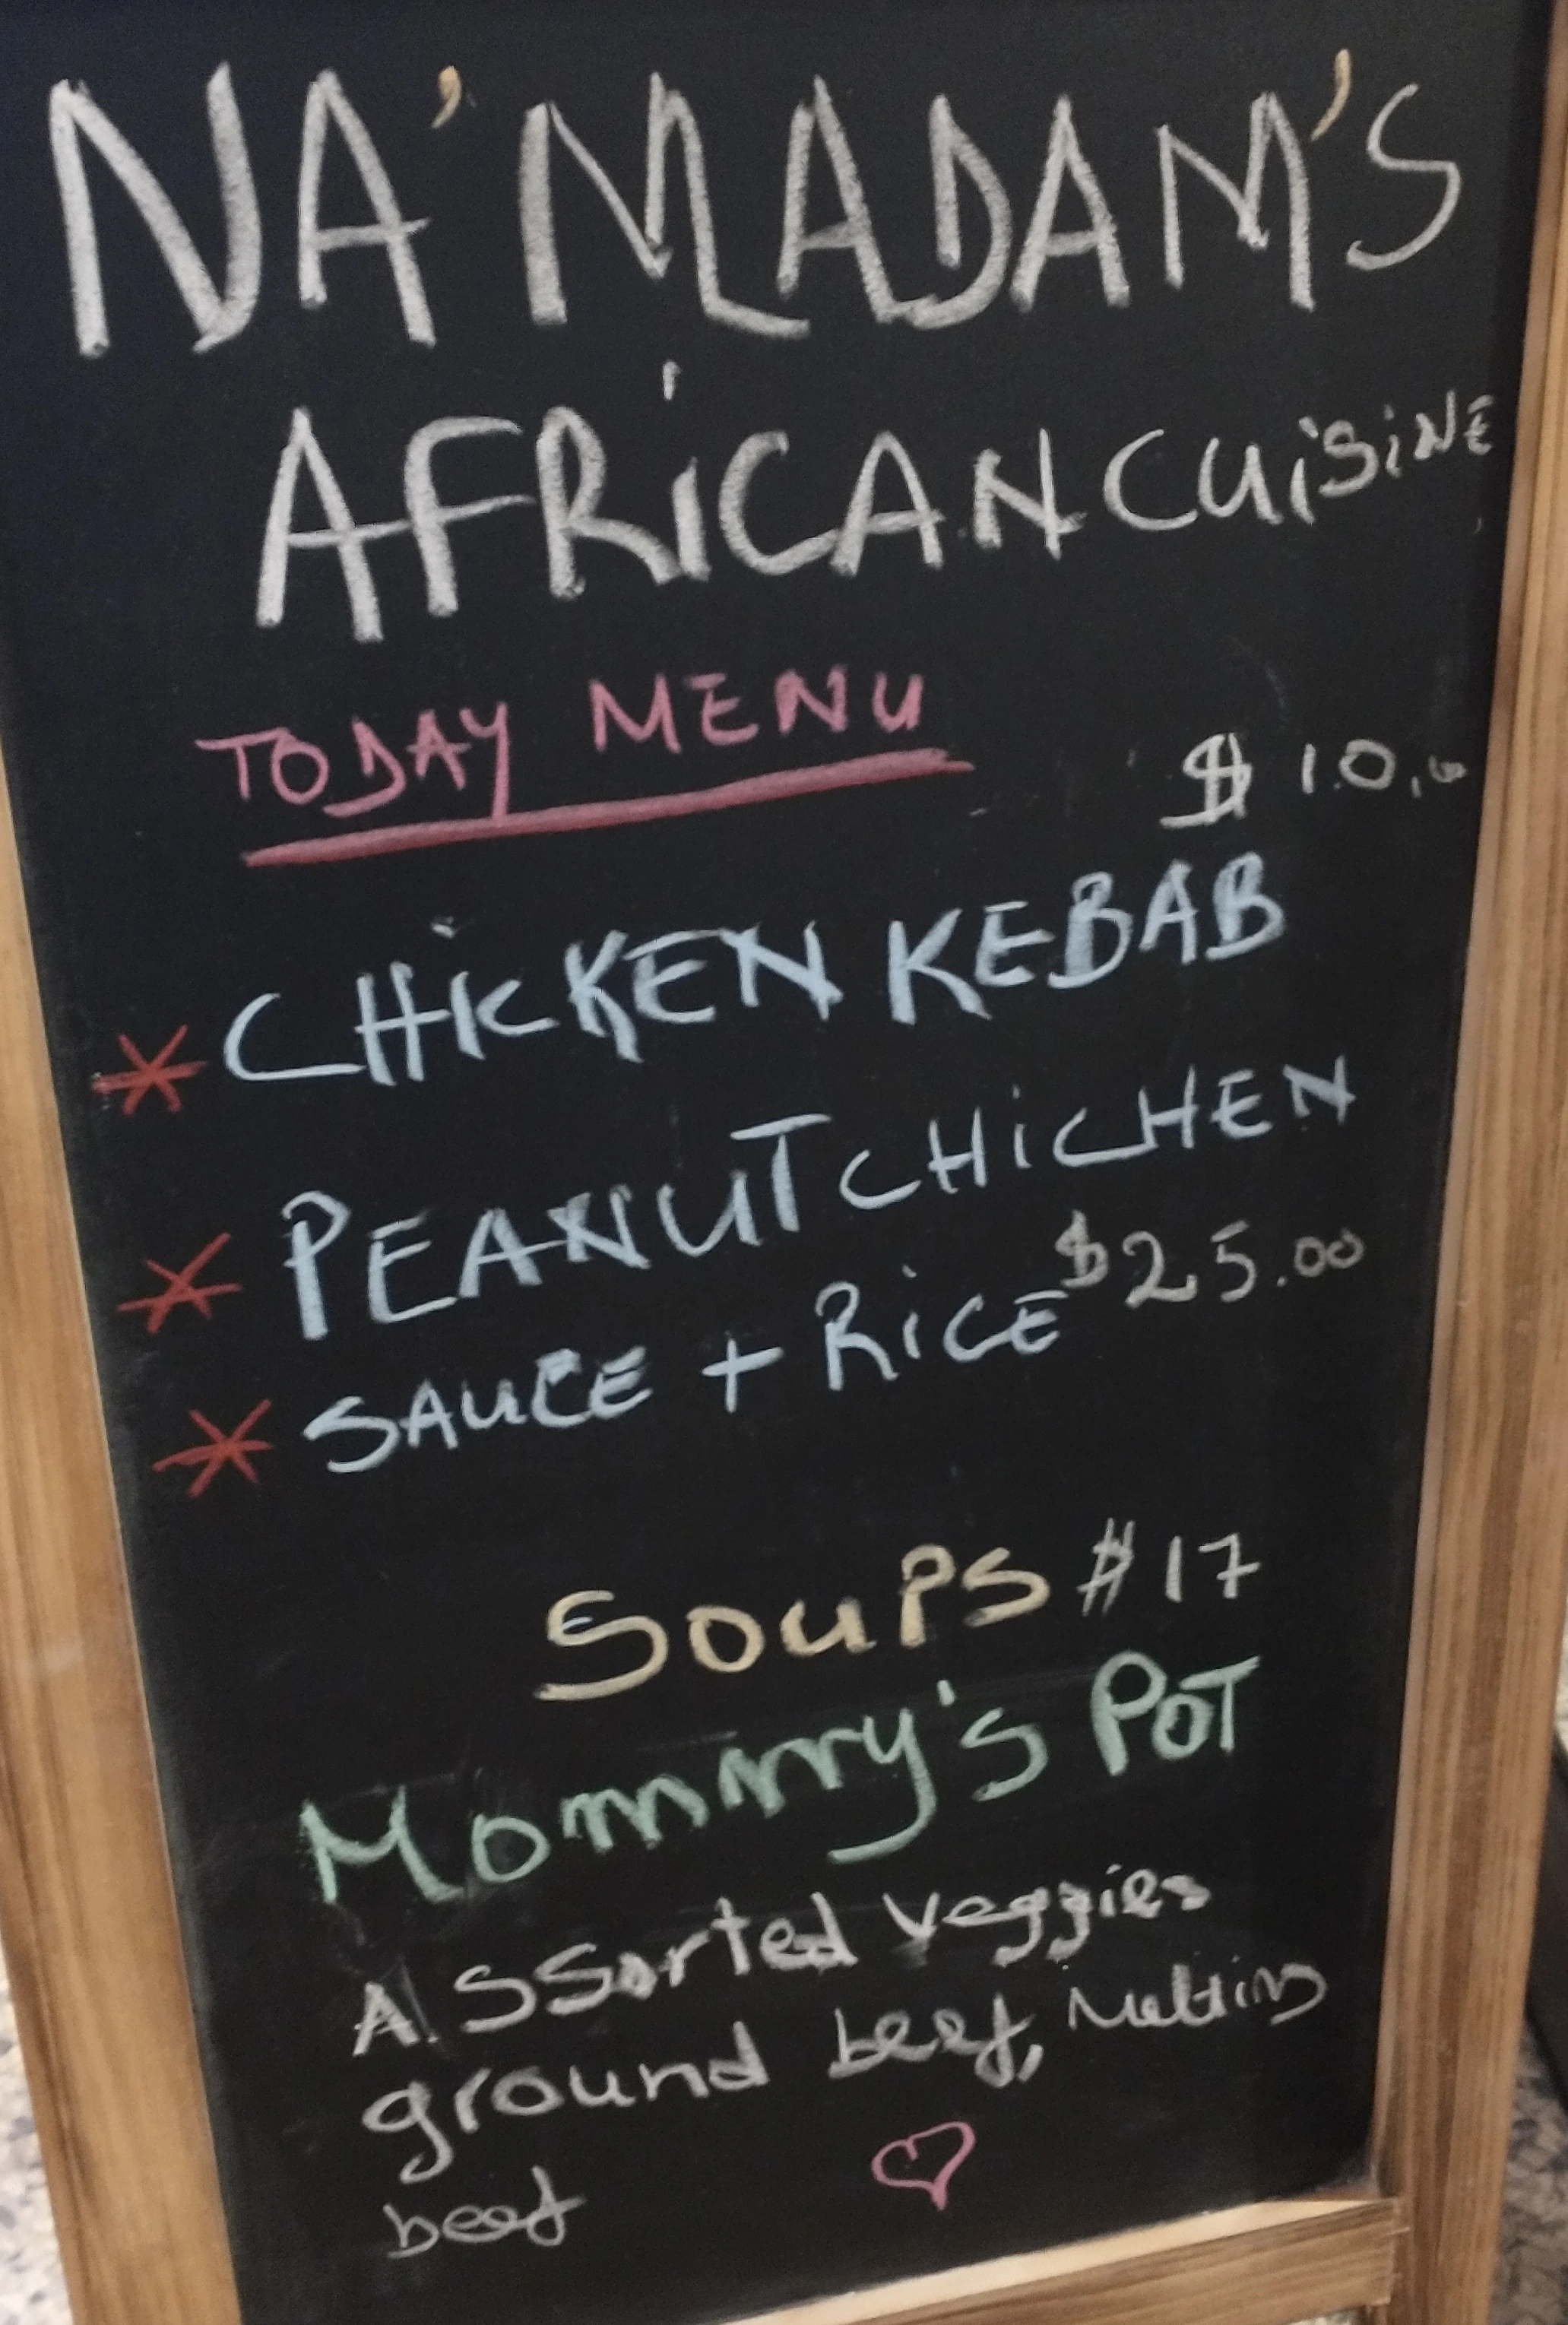 NA'MADAM'S
AFRiCAN CUiSiNE
TODAY MENU
$ 10,00
* CHiCKEN KEBAB
* PEANUT CHiCHEN
* SAUCE + RiCE $25.00
SOUPS $17
Mommy's POT
Assorted veggies
ground beef, Melting
beef